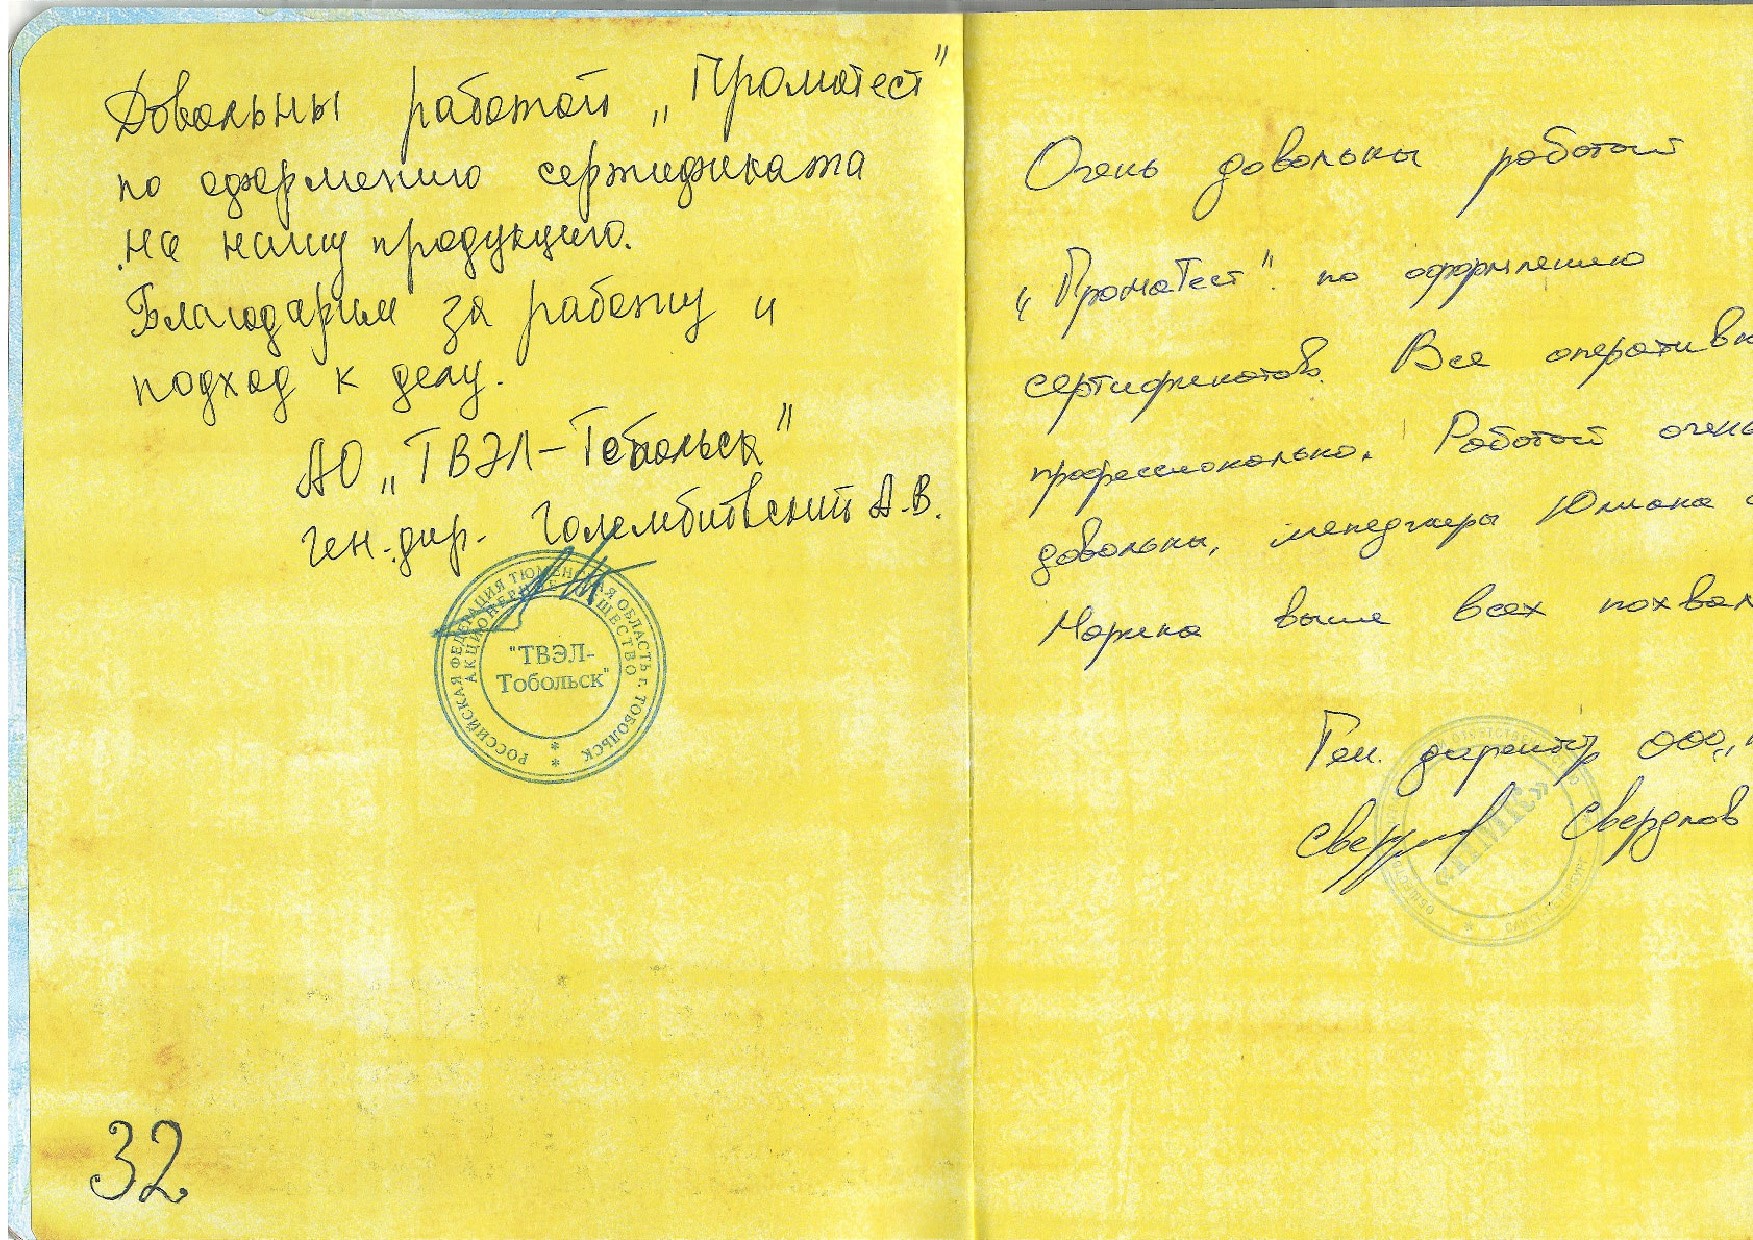 Довольны работой „Промотест"
по оформлению сертификата
на нашу продукцию.
Благодарим за работу и
подход к делу.
АО „ТВЭЛ-Тобольск"
ген. дир. Голембитовский А.В.
РОССИЙСКАЯ ФЕДЕРАЦИЯ ТЮМЕНСКАЯ ОБЛАСТЬ г. ТОБОЛЬСК
АКЦИОНЕРНОЕ ОБЩЕСТВО
"ТВЭЛ-
Тобольск"
32
Очень довольны работой
„ПромаТест". по оформлению
сертификатов. Все оперативн
профессионально. Работой очень
довольны, менеджеры Юлиана
Марина выше всех похвал
Ген. директор ООО „
Свердлов
«ПМК»